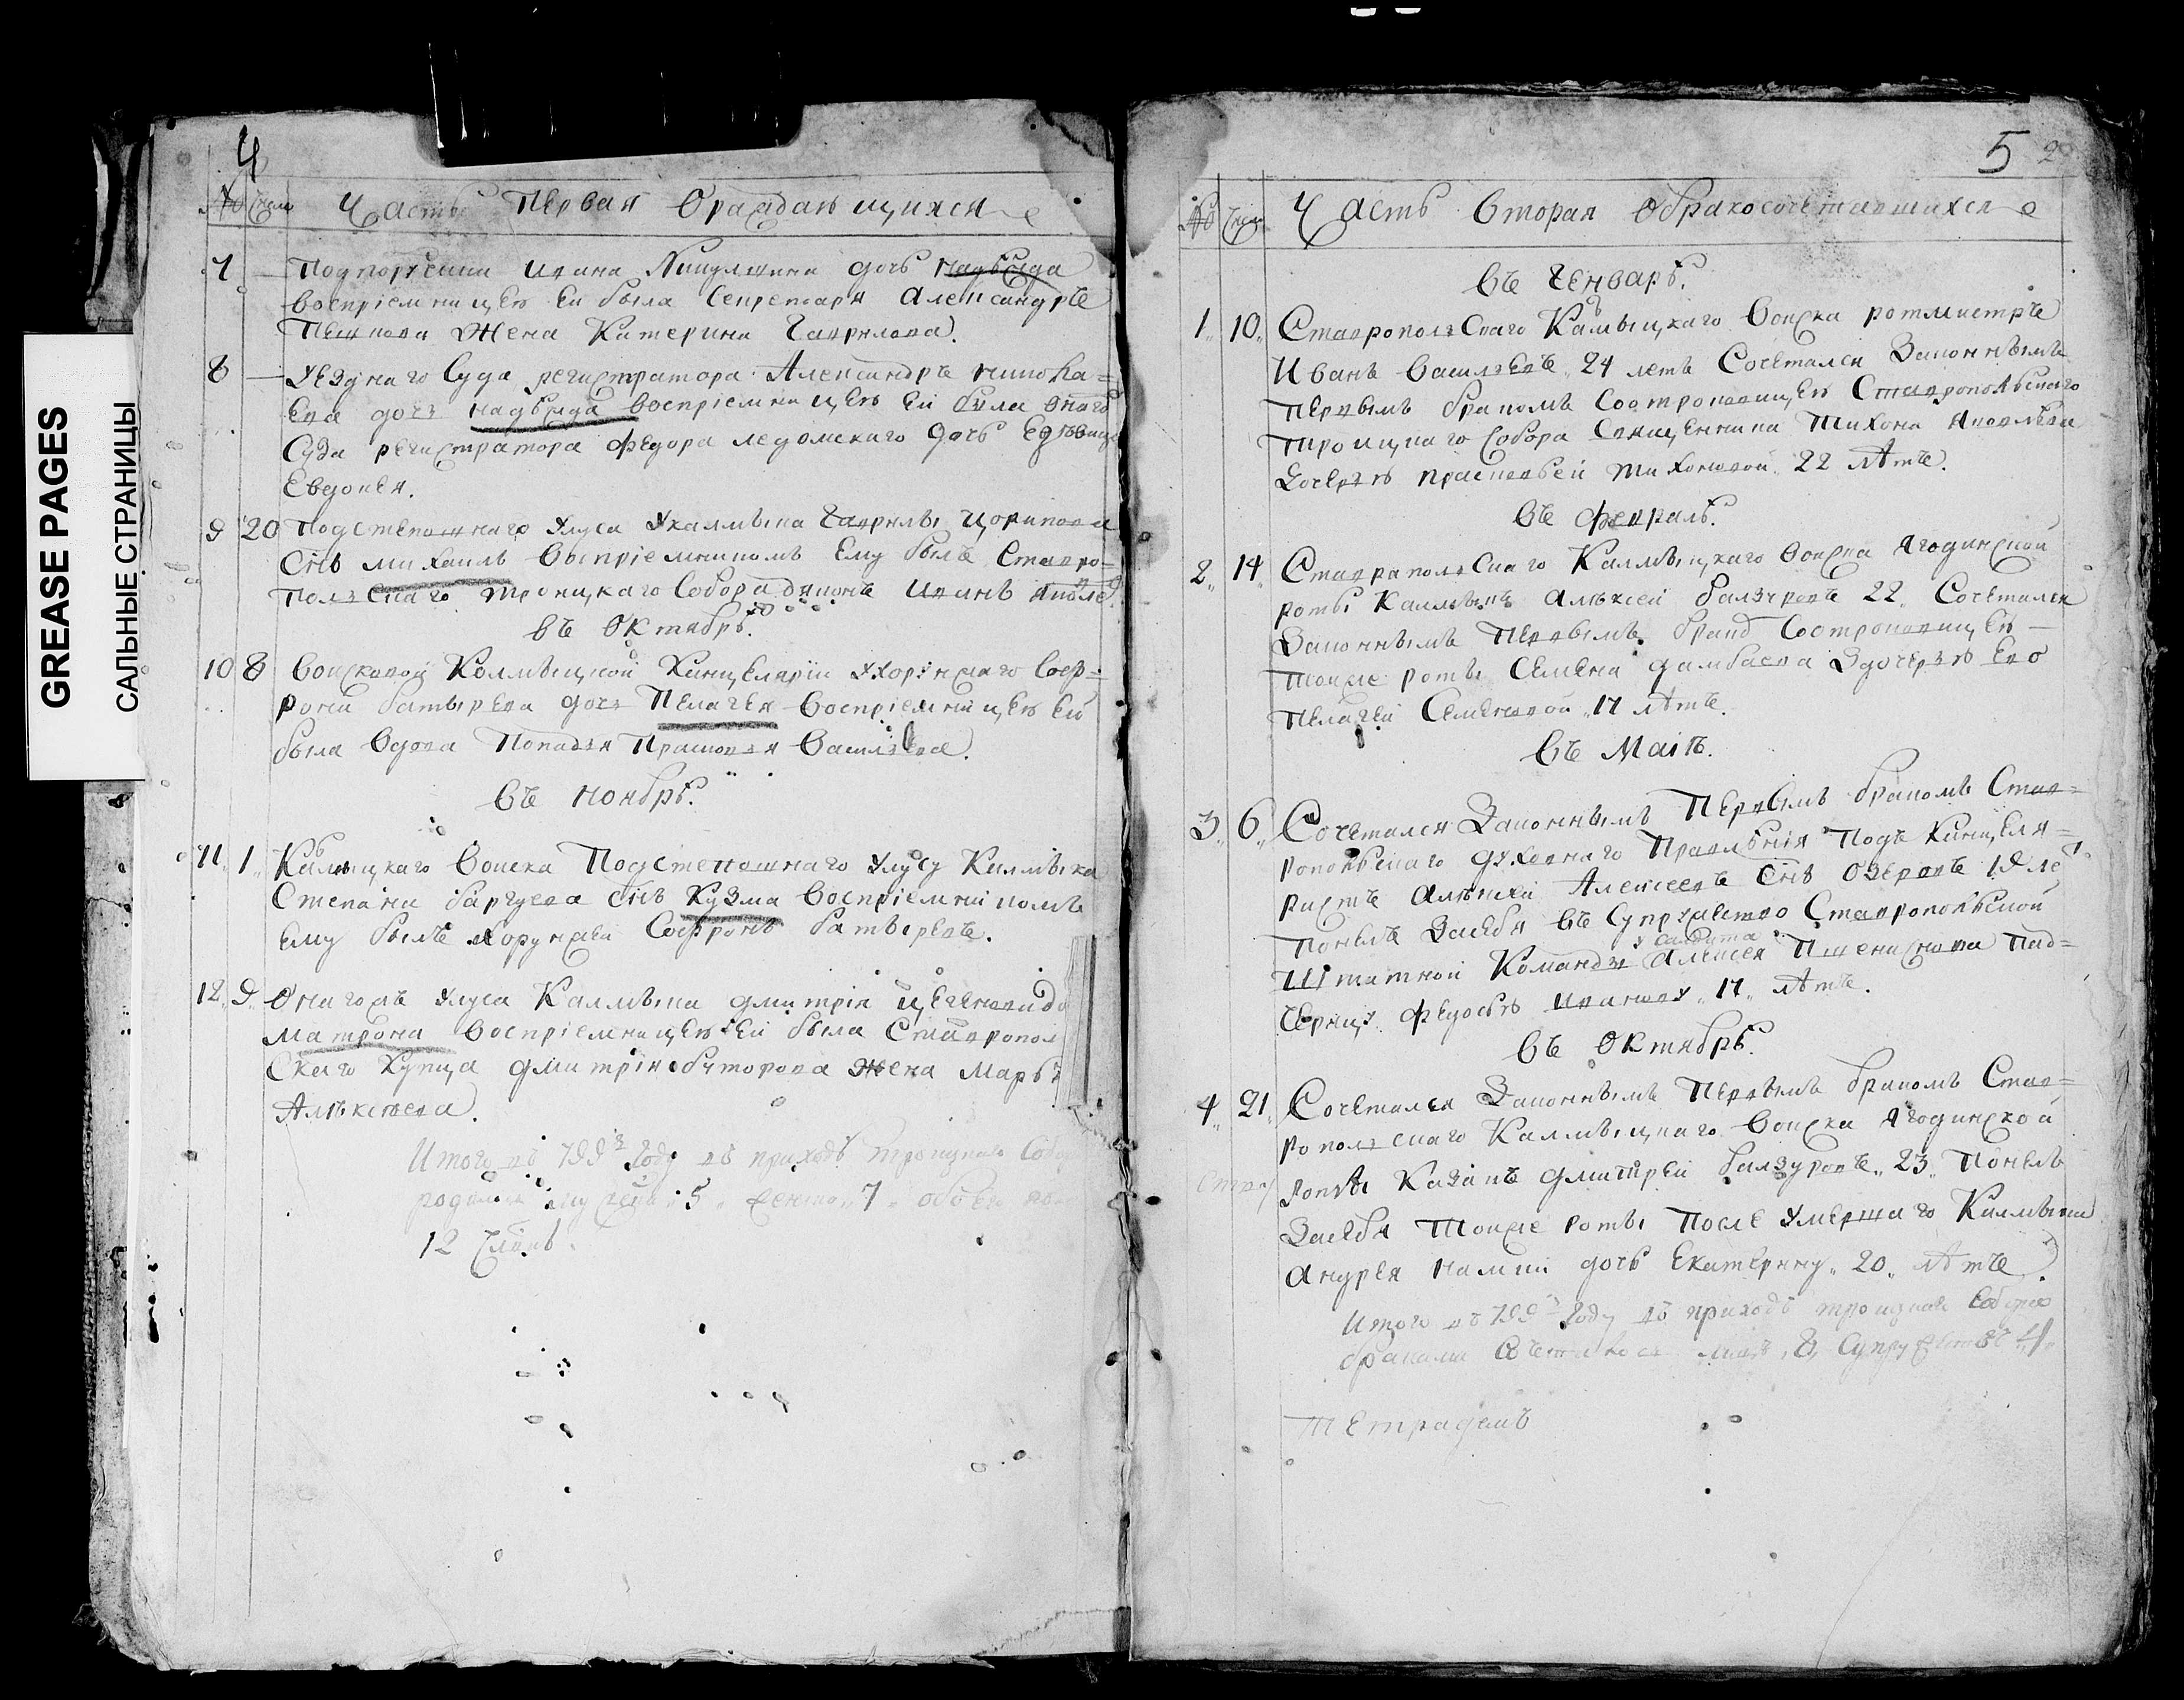 GREASE PAGES
САЛЬНЫЕ СТРАНИЦЫ
4
№ Число Часть Первая О раждающихся
7 — Подпоручика Ивана дочь Надежда
воспрiемницею ей была Секретаря Александръ
жена Катерина Гаврилова.
8 — Уезднаго Суда регистратора Александръ
ева дочь надежда воспрiемницею ей была онаго
Суда регистратора Федора ледомскаго дочь
Евдокея.
9 20 Подстепошнаго Улуса Укалмыка Гаврилы
снъ михаилъ воспрiемникомъ Ему былъ Ставро=
польскаго троицкаго Собора дьяконъ Иванъ
въ Октябрѣ.
10 8 Воисковой Калмыцкой Канцелярiи Ухорунжаго Соф=
рона батырева дочь Пелагея воспрiемницею ей
была вдова Попадья Прасковья Васильева.
въ ноябрѣ.
11 1 Калмыцкаго Воиска Подстепошнаго Улусу Калмыка
Степана баргуева снъ Кузма воспрiемникомъ
Ему былъ Хорунжеи Софронъ батыревъ.
12 9 Онагожъ Улуса Калмыка дмитрiя
матрона воспрiемницею Ей была Ставрополь
Скаго Купца дмитрiя обуторова жена Марья
Алѣксѣева.
Итого въ 1799 году въ приходѣ троицкаго
родилося мужеска 5 женска 7 обоего
12 члвкъ.
5
№ Число Часть Вторая Обракосочетавшихся
Въ Генварѣ.
1 10 Ставропольскаго Калмыцкаго Воиска ротмистръ
Иванъ Васильевъ 24 летъ Сочетался Законнымъ
первымъ бракомъ Соотроковицею Ставропольскаго
троицкаго Собора Священника Тихона Яковлева
Дочерью прасковьей Тихоновой 22 лѣтъ.
Въ Февралѣ.
2 14 Ставрапольскаго Калмыцкаго Воиска Ягодинской
роты Калмыкъ Алѣксей балзуровъ 22 Сочетался
Законнымъ Первымъ брако Соотроковицею —
тоиже роты Семена дамбаева Здочерью Его
Пелагеи Семеновой 17 лѣтъ.
Въ Маiѣ.
3 6 Сочетался Законнымъ Первымъ бракомъ Став=
ропольскаго духовнаго Правленiя Подъ Канцеля=
ристъ Алѣксѣй Алексеевъ Снъ Озеровъ 19 ле
Понялъ Засебя въ Супружество Ставропольской
Штатной Команды у салдата Алексея Пшеничнова Пад=
Черицу Федосью Иванову 17 лѣтъ.
Въ Октябрѣ.
4 21 Сочетался Законнымъ Первымъ бракомъ Став=
ропольскаго Калмыцкаго Воиска Ягодинской
Роты Казакъ дмитрей балзуровъ 23 Понялъ
Засебя Тоиже роты После умершаго Калмыка
Андрея дочь Екатерину 20 лѣтъ.
Итого въ 1799 году въ приходѣ троицкаго Собора
браками 8 Супружествъ 4
Тетрадемъ